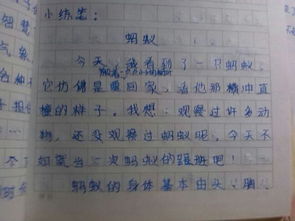 小练笔:
蚂蚁
今天,我看到了一只蚂蚁,
它仿佛是要回家,看他那横冲直
撞的样子。我想:观察过许多动
物,还没观察过蚂蚁呢,今天不
如来当一次蚂蚁的跟班吧!
蚂蚁的身体基本由头、胸、